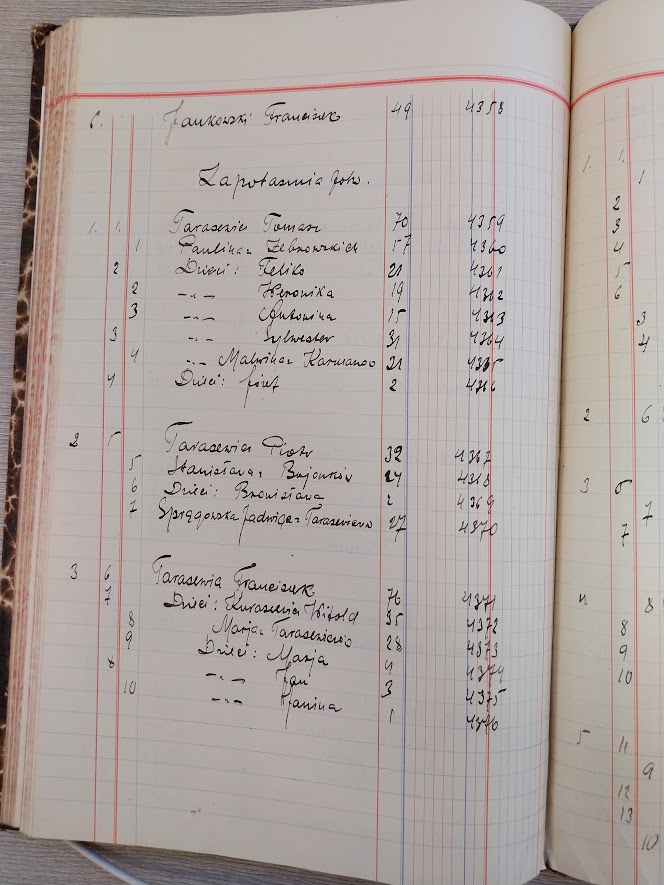 6. Jankowski Franciszek 49 4358
Łapotaśnia folw.
1. 1. Tarasewicz Tomasz 70 4359
1 Paulina z Żebrowskich 57 4360
2 Dzieci: Feliks 21 4361
2 -„- Weronika 19 4362
3 -„- Antonina 15 4363
3 -„- Sylwester 31 4364
4 -„- Malwina z 21 4365
4 Dzieci: Józef 2 4366
2 5 Tarasewicz Piotr 32 4367
5 Stanisława z Bujonków 24 4368
6 Dzieci: Bronisława 2 4369
7 Jadwiga z Tarasewiczów 27 4370
3 6 Tarasewicz Franciszek 76 4371
7 Dzieci: Witold 35 4372
8 Marja z Tarasewiczów 28 4373
9 Dzieci: Marja 4 4374
8 -„- Jan 3 4375
10 -„- Janina 1 4376
1. 1.
1
2
3
4
5
6
3
4
2 6
3 5
7
7
8
8
9
10
5 11
9
12
13
10